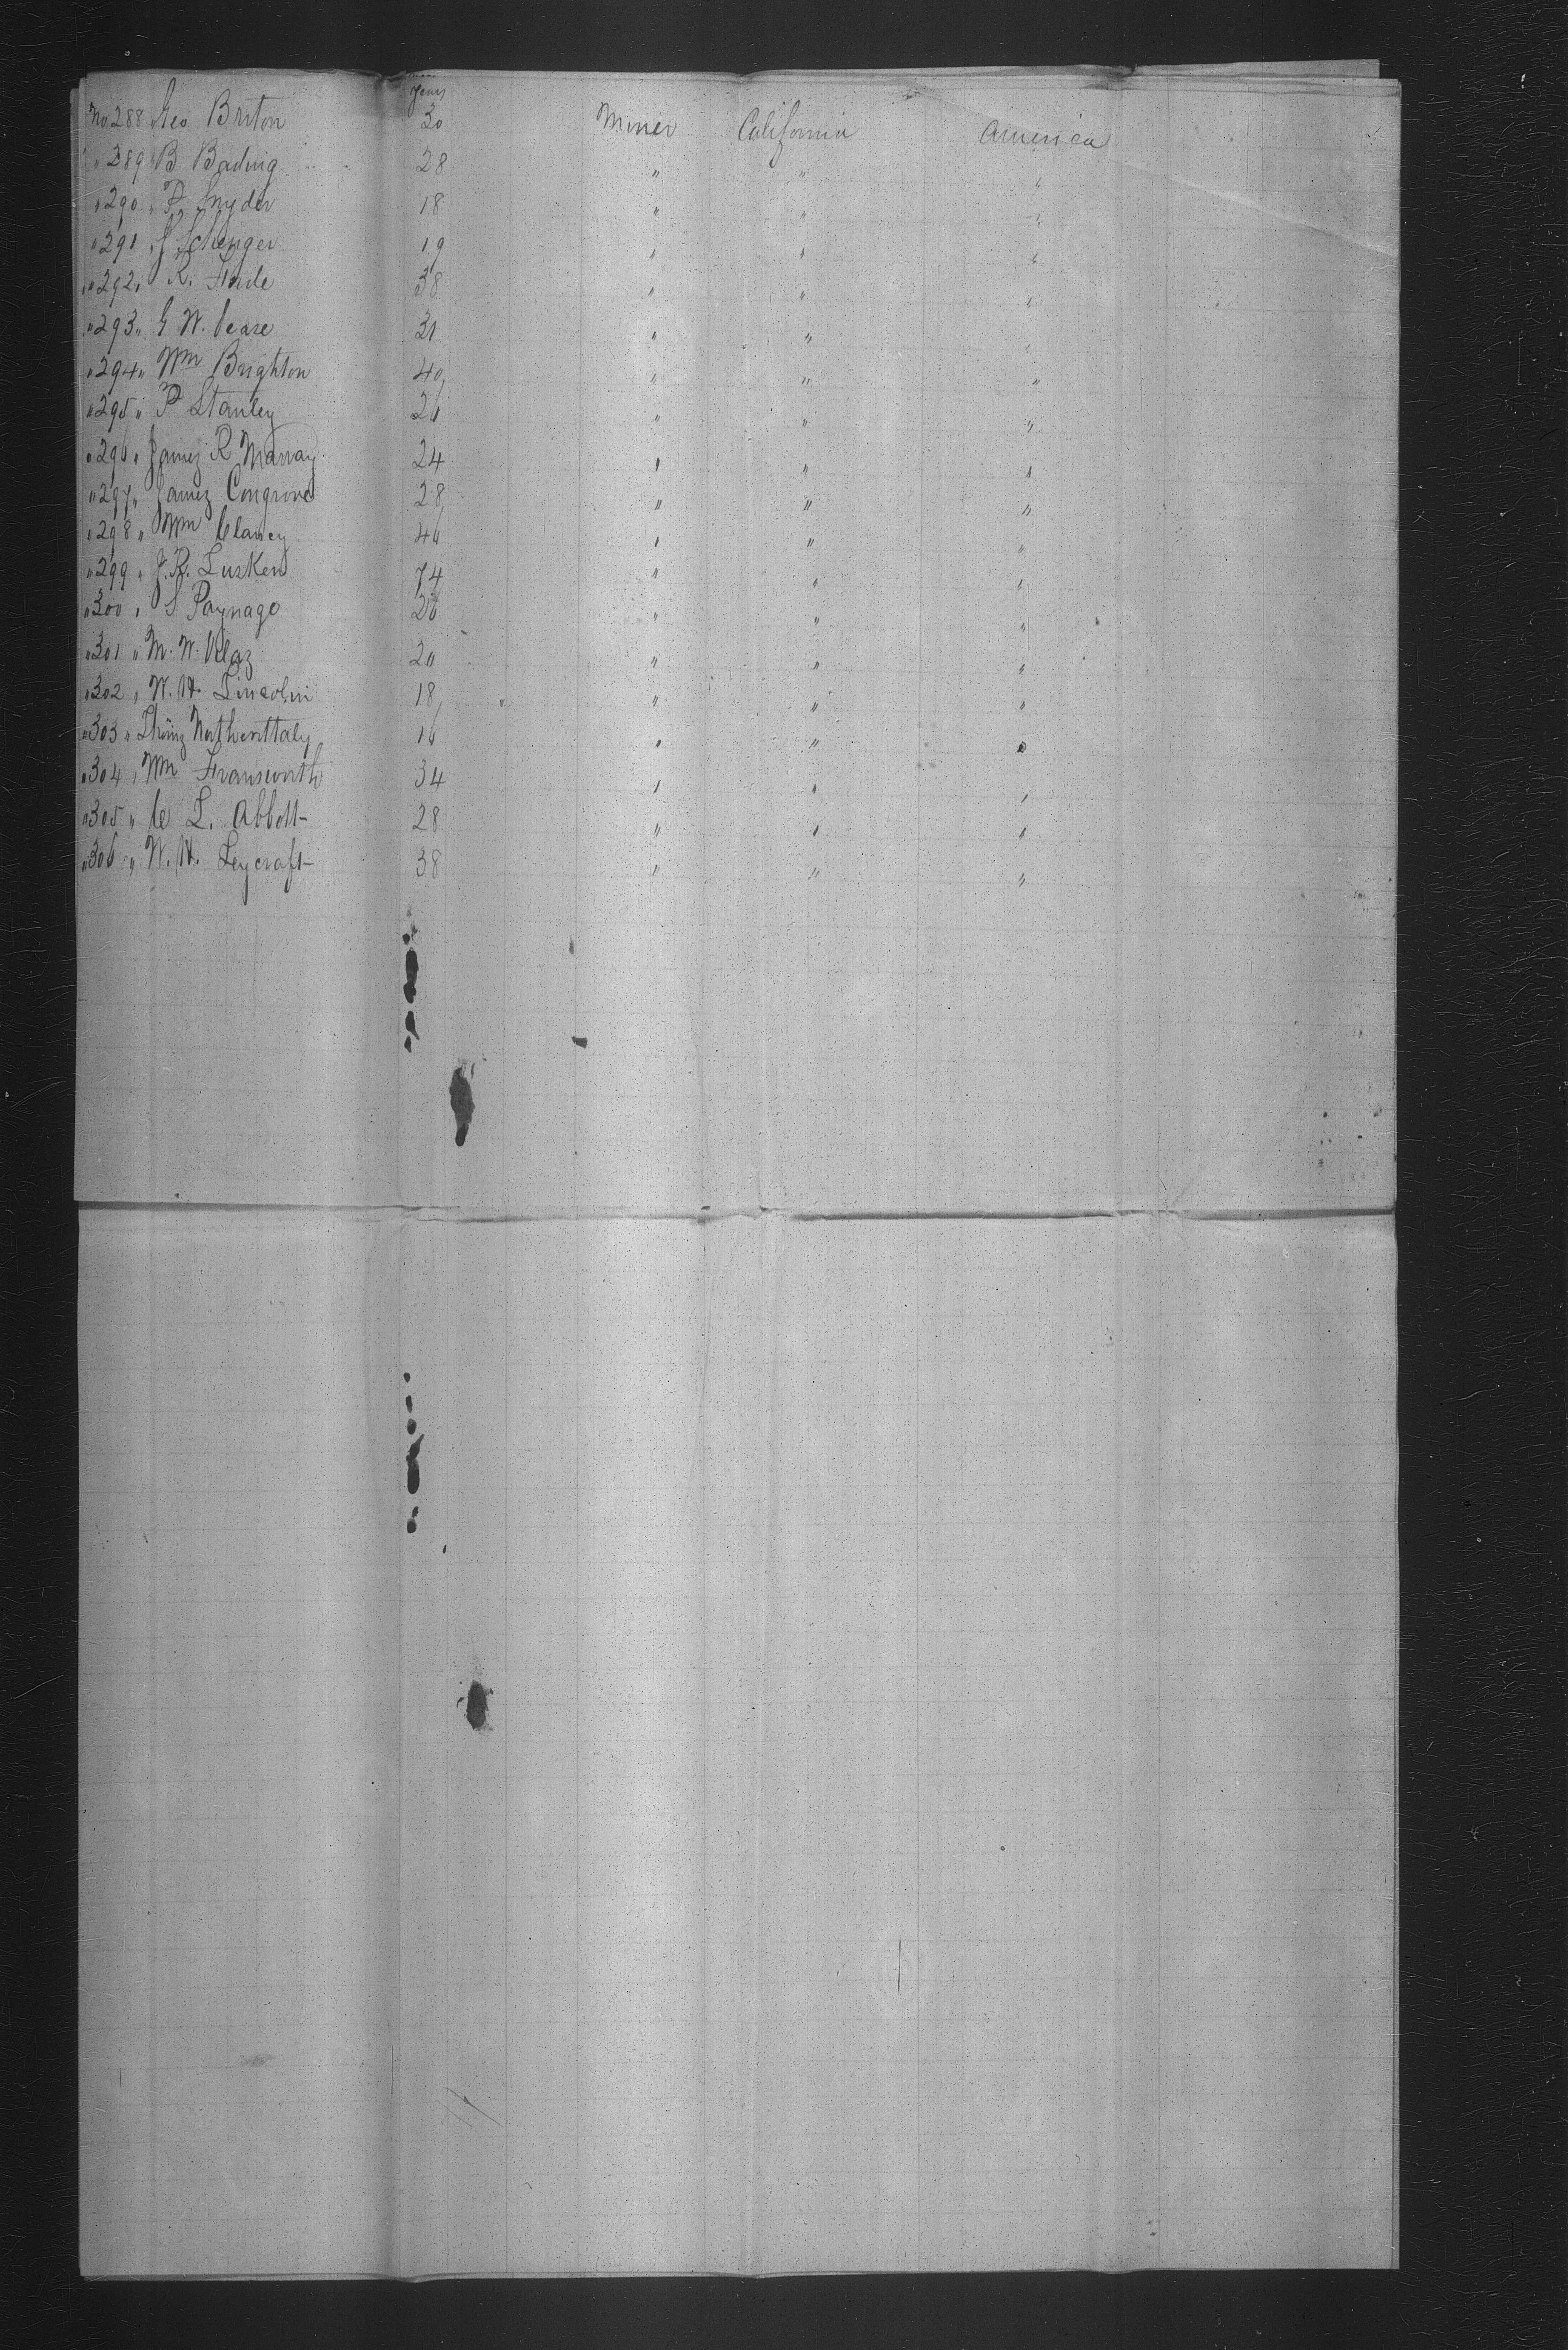 years
No 288 Geo Briton 30 Miner California America
" 289 B Bading 28 " " "
" 290 " P. Snyder 18 " " "
" 291 " J Schenger 19 " " "
" 292 " R. Forde 38 " " "
" 293 " G W. Case 31 " " "
" 294 " Wm Brighton 40 " " "
" 295 " P Stanley 26 " " "
" 296 " James R Murray 24 " " "
" 297 " James Congrove 28 " " "
" 298 " Wm Clancy 46 " " "
" 299 " J. R. Lusken 74 " " "
" 300 " S. Paynago 26 " " "
" 301 " M. W. 20 " " "
" 302 " W. H. Lincolin 18 " " "
" 303 " 16 " " "
" 304 " Wm Fransworth 34 " " "
" 305 " C L. Abbott 28 " " "
" 306 " W. H. Leycraft 38 " " "